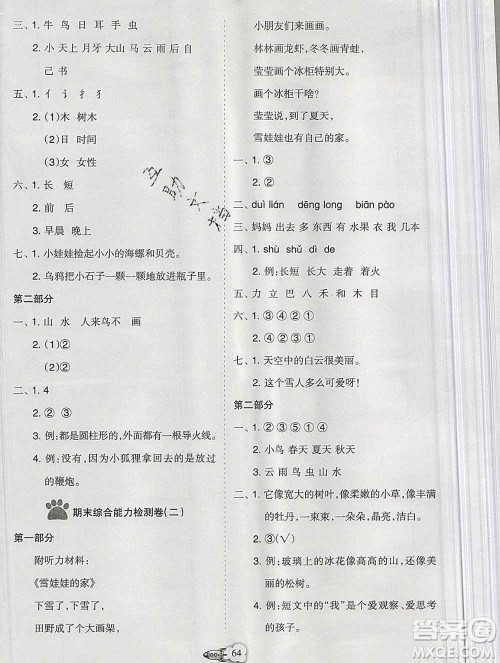 三、1. 牛 鸟 日 耳 手 虫
2. 小 天上 月牙 大山 马 云 雨 后
己 书
五、1. 亻 讠 扌 犭
2. (1)木 树木
(2)日 时间
(3)女 女性
六、1. 长 短
2. 前 后
3. 早晨 晚上
七、1. 小娃娃捡起小小的海螺和贝壳。
2. 乌鸦把小石子一颗一颗地放进瓶子里。
第二部分
一、1. 山 水 人来鸟不 画
2. (1)②
(2)①
二、1. 4
2. ② ③
3. 例:都是圆柱形的,里面都有一根导火线。
4. 例:没有,因为小狐狸拿回去的是放过的
的鞭炮。
期末综合能力检测卷(二)
第一部分
附听力材料:
《雪娃娃的家》
下雪了,下雪了,
田野成了大画架,
小朋友们来画画。
林林画龙虾,冬冬画青蛙,
莹莹画个冰柜特别大。
画个冰柜干啥?
莹莹说,到了夏天,
雪娃娃也有自己的家。
一、1. ③
2. ①
二、duì lián dēng long biān pào
三、妈妈 出去 多 东西 有 水果 衣 我 几本
四、1. shù shǔ dì de
2. 例:长短 长大 走着 着火
五、力 立 巴 八 禾 和 木 目
六、① ③ ④ ② ①
七、1. 天空中的白云很美丽。
2. 这个雪人多么可爱呀!
第二部分
一、1. ②③④⑤①
2. 小鸟 春天 夏天 秋天
3. 云 雨 鸟 虫 山
二、1. 它像宽大的树叶,像优美的小草,像丰满
的牡丹,一束束,一朵朵,晶亮、洁白。
2. ③(√)
3. 例:玻璃上的冰花像高高的山,还像美丽
的松树。
4. 例:短文中的“我”是个爱观察、爱思考
的孩子。
64